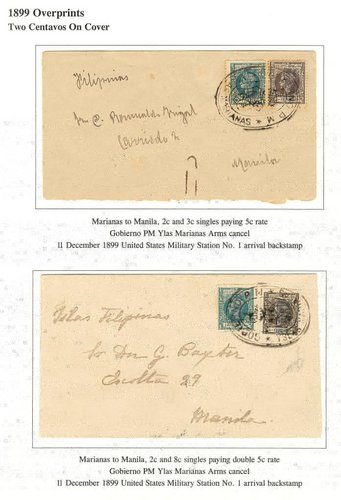 1899 Overprints
Two Centavos On Cover
Filipinas
Manila
Marianas to Manila, 2c and 3c singles paying 5c rate
Gobierno PM Ylas Marianas Arms cancel
11 December 1899 United States Military Station No. 1 arrival backstamp
Islas Filipinas
to Don G. Baxter
Escolta 29
Manila
Marianas to Manila, 2c and 8c singles paying double 5c rate
Gobierno PM Ylas Marianas Arms cancel
11 December 1899 United States Military Station No. 1 arrival backstamp